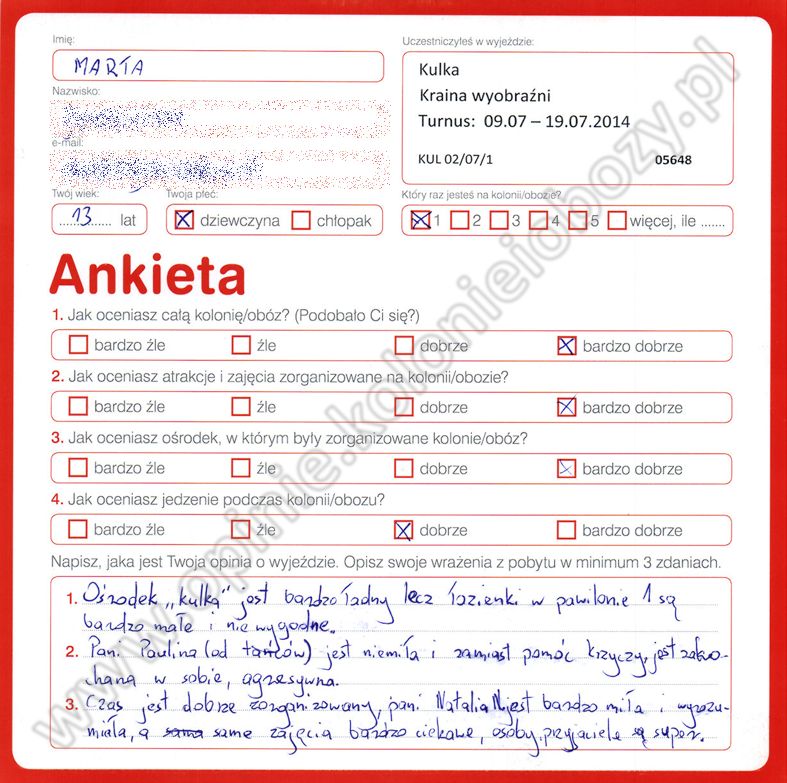 Imię:
MARTA
Uczestniczyłeś w wyjeździe:
Kulka
Kraina wyobraźni
Turnus: 09.07 – 19.07.2014
KUL 02/07/1 05648
Nazwisko:
e-mail:
Twój wiek:
13 lat
Twoja płeć:
dziewczyna chłopak
Który raz jesteś na kolonii/obozie?
1 2 3 4 5 więcej, ile .......
Ankieta
1. Jak oceniasz całą kolonię/obóz? (Podobało Ci się?)
bardzo źle źle dobrze bardzo dobrze
2. Jak oceniasz atrakcje i zajęcia zorganizowane na kolonii/obozie?
bardzo źle źle dobrze bardzo dobrze
3. Jak oceniasz ośrodek, w którym były zorganizowane kolonie/obóz?
bardzo źle źle dobrze bardzo dobrze
4. Jak oceniasz jedzenie podczas kolonii/obozu?
bardzo źle źle dobrze bardzo dobrze
Napisz, jaka jest Twoja opinia o wyjeździe. Opisz swoje wrażenia z pobytu w minimum 3 zdaniach.
1. Ośrodek „kulka" jest bardzo ładny lecz łazienki w pawilonie 1 są
bardzo małe i niewygodne.
2. Pani Paulina (od tańców) jest niemiła i zamiast pomóc krzyczy, jest zako-
chana w sobie, agresywna.
3. Czas jest dobrze zorganizowany, pani Natalia N. jest bardzo miła i wyrozu-
miała, a same zajęcia bardzo ciekawe, osoby, przyjaciele są super.
www.opinie.kolonieiobozy.pl